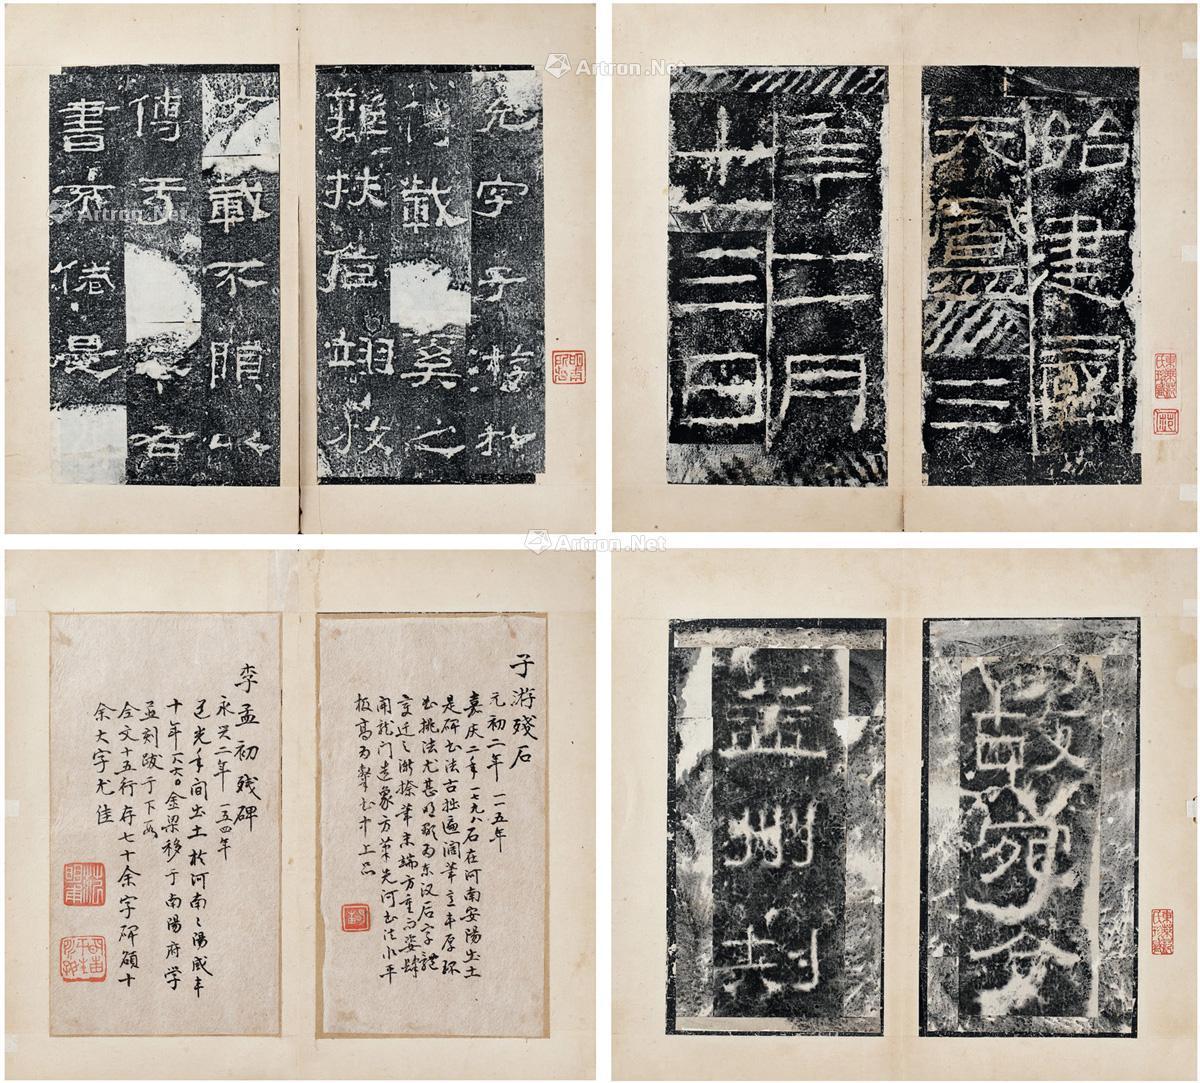 允字子游
載不隕以
傳于
書不倦是
始建國
天鳳三
年二月
十三日
子游残石
元初二年 一一五年
嘉庆二年一七九八石在河南安阳出土
是碑书法古拙遍阔笔意丰厚
挑法尤甚明显为东汉后字体
变迁之渐捺笔末端方重而姿肆
开龙门造象方笔先河书法水平
极高为隶书中上品
李孟初残碑
永兴二年 一五四年
道光年间出土于河南之阳咸丰
十年一八六〇金梁移于南阳府学
并刻跋于下段
全文十五行存七十余字碑额十
余大字尤佳
故宛令
益州刺
Artron.Net
Artron.Net
Artron.Net